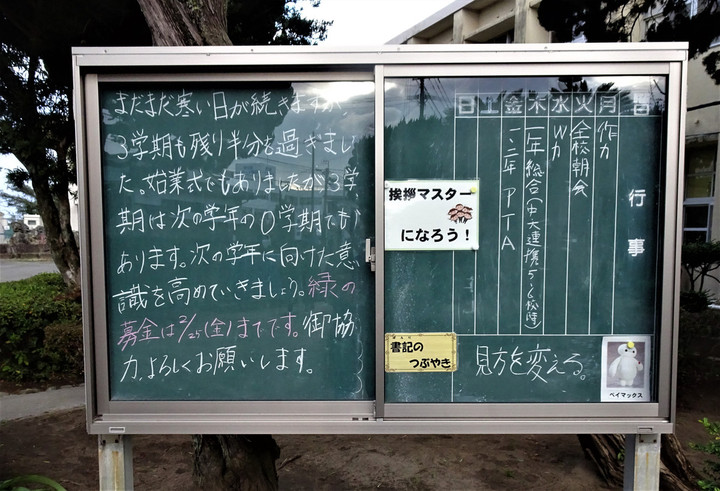 まだまだ寒い日が続きますが、
3学期も残り半分を過ぎまし
た。始業式でもありましたが3学
期は次の学年の0学期でも
あります。次の学年に向けた意
識を高めていきましょう。緑の
募金は2/25(金)までです。御協
力よろしくお願いします。
行事
月
作力
火
全校朝会
水
Wカ
木
一年 総合(中大連携5、6校時)
金
一、二年 PTA
土
日
挨拶マスター
になろう！
書記の
つぶやき
見方を変える。
ベイマックス